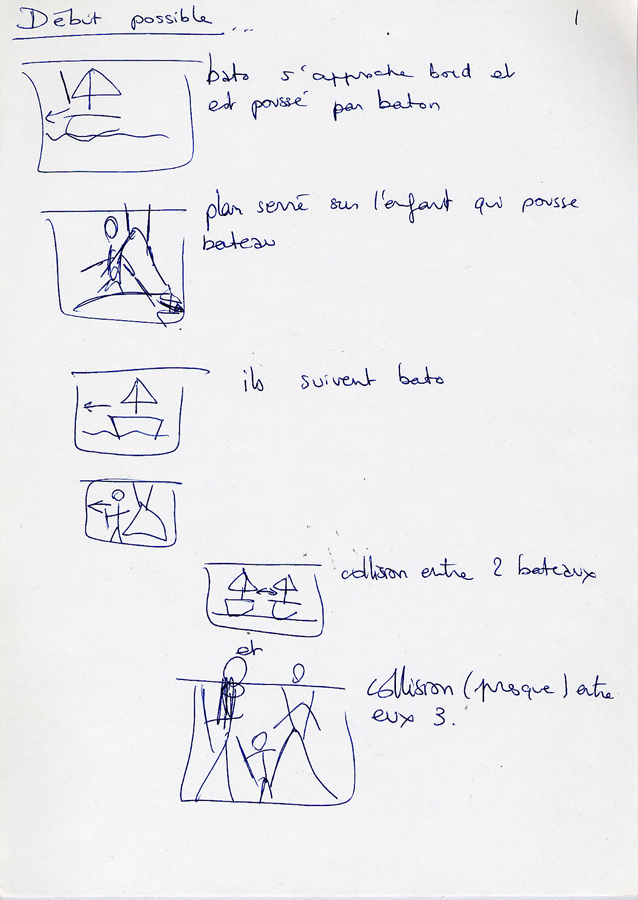 Début possible ...
1
bato s'approche bord et
est poussé par baton
plan serré sur l'enfant qui pousse
bateau
ils suivent bato
collison entre 2 bateaux
et
collision (presque) entre
eux 3.